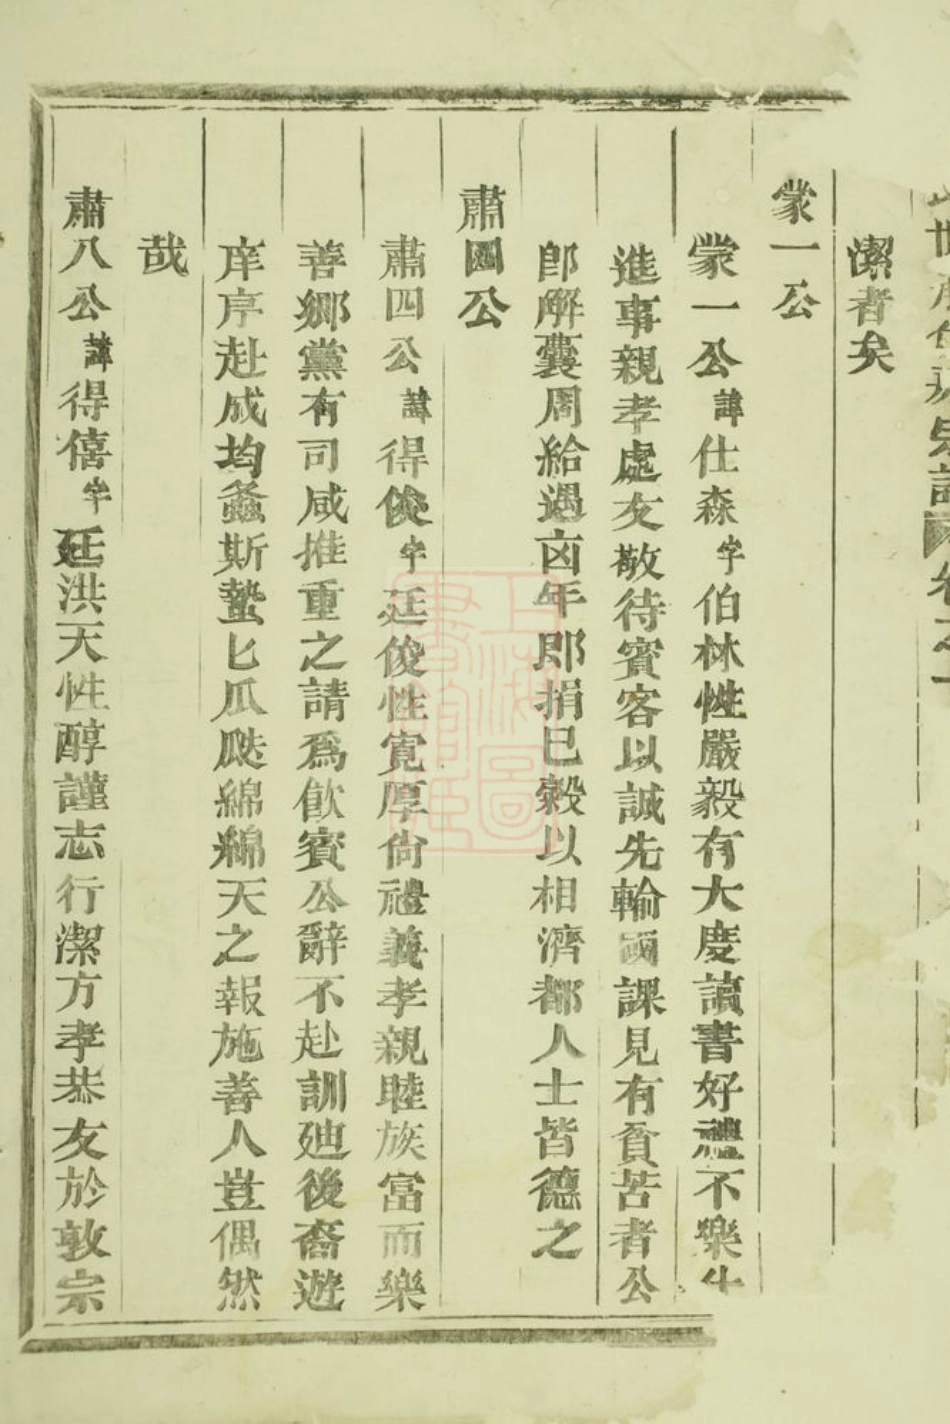 潔者矣
蒙一公
蒙一公諱仕森字伯林性嚴毅有大度讀書好禮不樂仕
進事親孝處友敬待賓客以誠先輸國課見有貧苦者公
卽解囊周給遇凶年卽捐已穀以相濟都人士皆德之
肅四公
肅四公諱得俊字廷俊性寬厚尙禮義孝親睦族富而樂
善鄉黨有司咸推重之請爲飮賓公辭不赴訓廸後裔遊
庠序赴成均螽斯蟄匕瓜瓞綿綿天之報施善人豈偶然
哉
肅八公諱得僖字廷洪天性醇謹志行潔方孝恭友於敦宗
上海圖書館藏